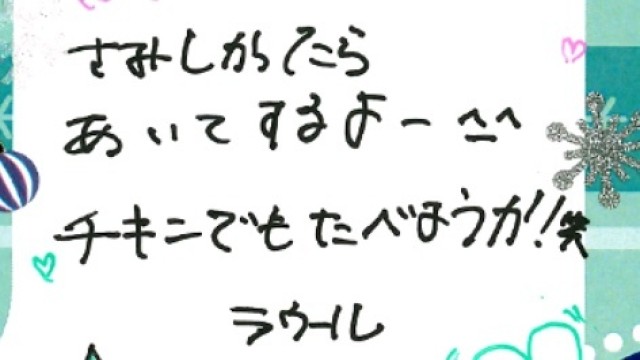 さみしかったら
あいてするよー ^_^
チキンでもたべようか!!笑
ラウール